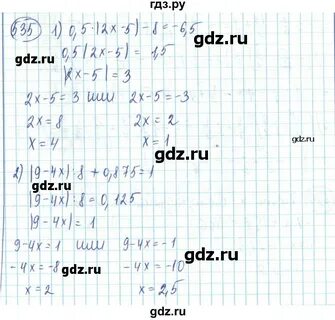 гдз.ру
535 1) 0,5·|2x-5|-8=-6,5
0,5|2x-5|=1,5
|2x-5|=3
2x-5=3 или 2x-5=-3
2x=8 2x=2
x=4 x=1
2) |9-4x|:8+0,875=1
|9-4x|:8=0,125
|9-4x|=1
9-4x=1 или 9-4x=-1
-4x=-8 -4x=-10
x=2 x=2,5
gdz.ru
gdz.ru
gdz.ru
gdz.ru
gdz.ru
gdz.ru
gdz.ru
gdz.ru